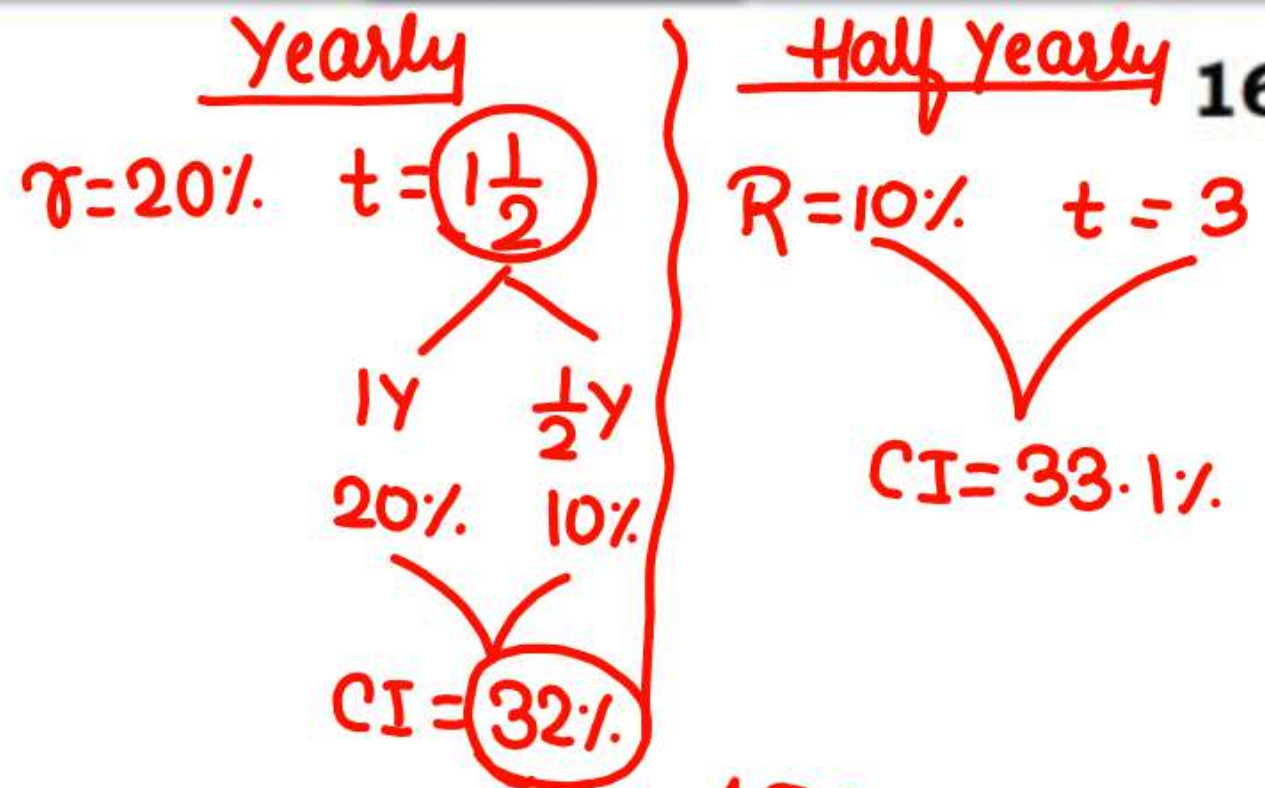 Yearly
r=20% t=1 1/2
1Y 1/2Y
20% 10%
CI=32%
Half Yearly
R=10% t=3
CI=33.1%
16